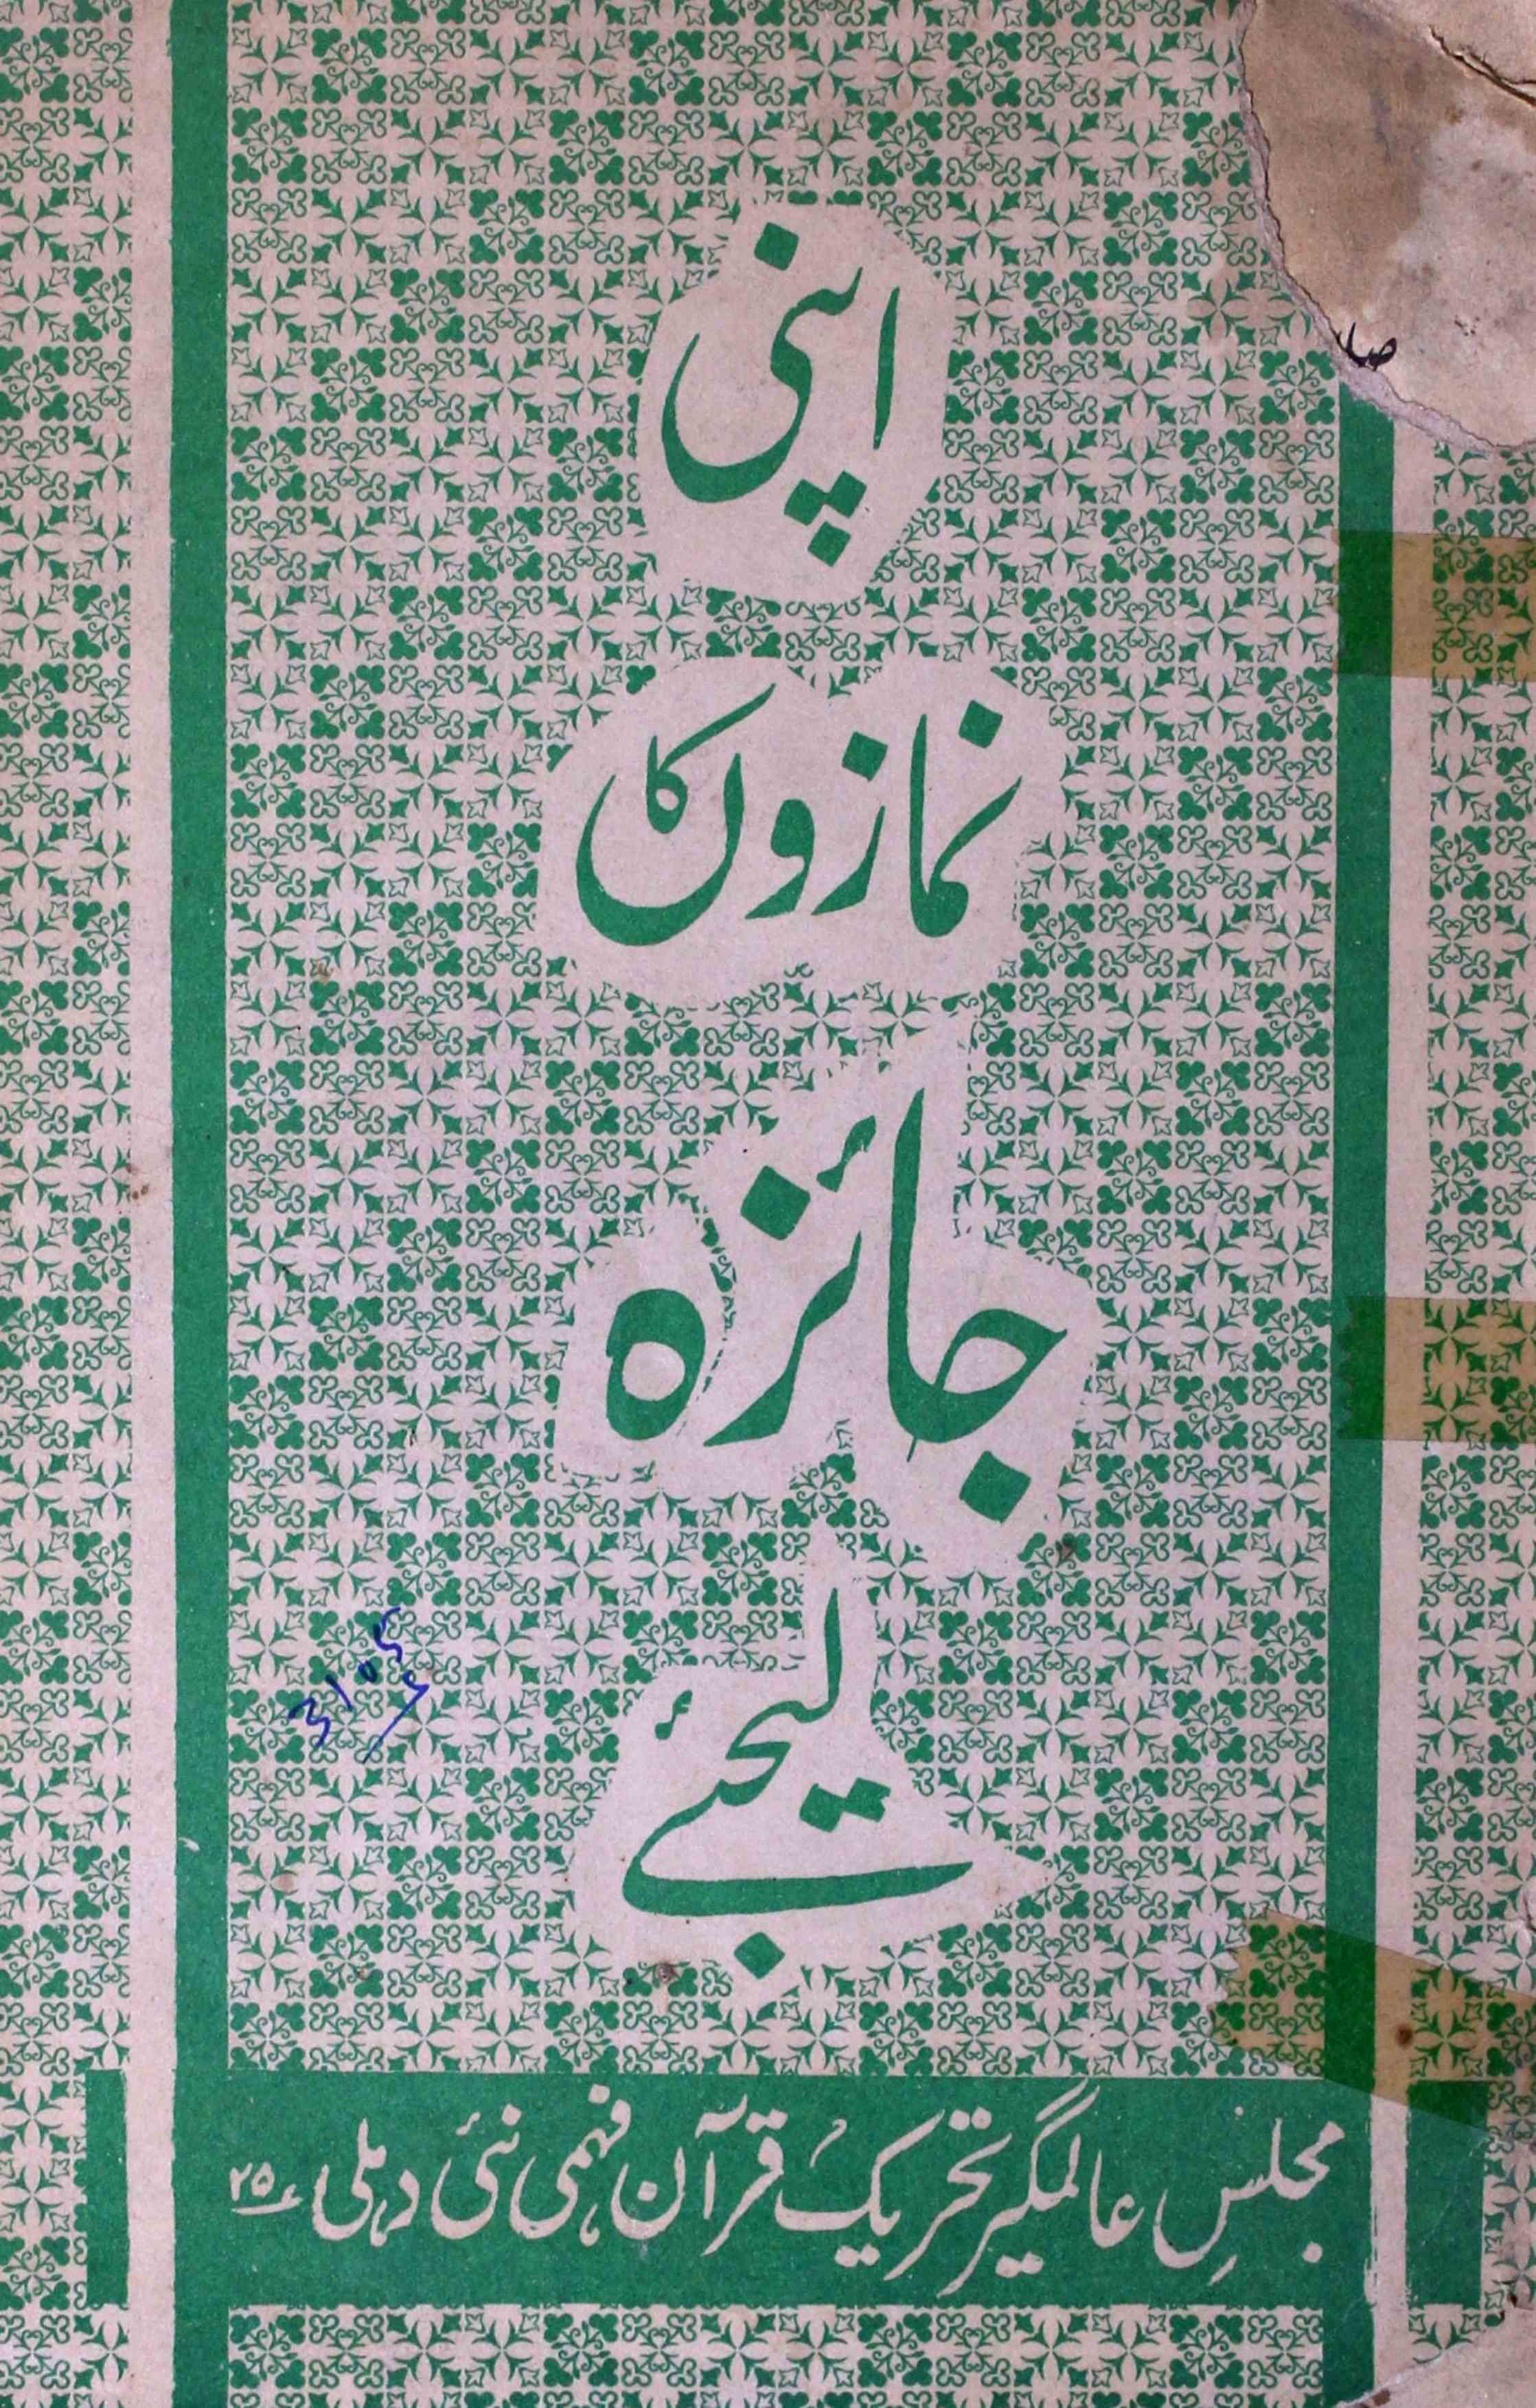 اپنی
نمازوں کا
جائزہ
لیجئے
مجلسِ عالمگیر تحریک قرآن فہمی نئی دہلی ۲۵
3105